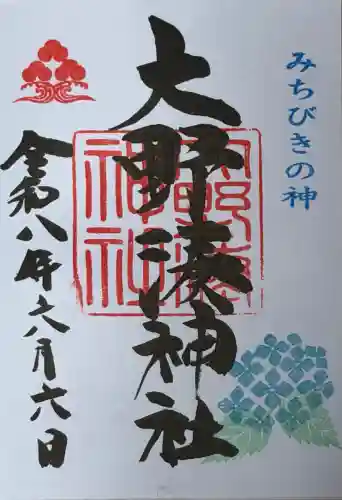 みちびきの神
大野湊神社
令和八年六月六日